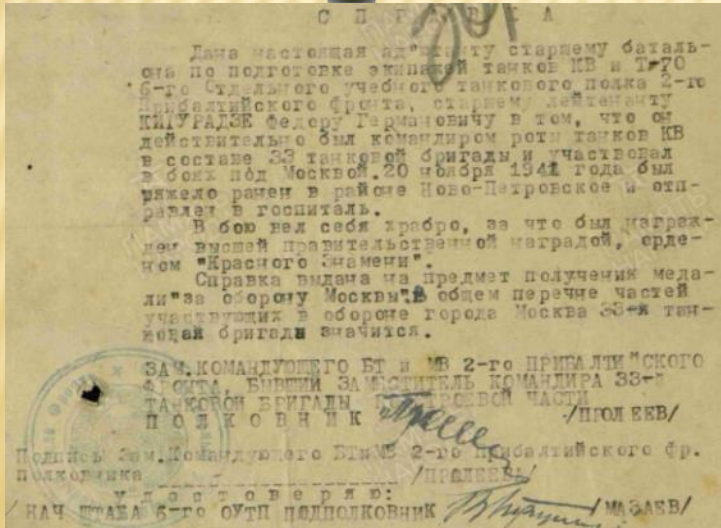 СПРАВКА
Дана настоящая ад"ютанту старшему баталь-
она по подготовке экипажей танков КВ и Т-70
6-го Отдельного учебного танкового полка 2-го
Прибалтийского фронта, старшему лейтенанту
КИГУРАДЗЕ Федору Германовичу в том, что он
действительно был командиром роты танков КВ
в составе 33 танковой бригады и участвовал
в боях под Москвой. 20 ноября 1941 года был
тяжело ранен в районе Ново-Петровское и отп-
равлен в госпиталь.
В бою вел себя храбро, за что был награж-
ден высшей правительственной наградой, орде-
ном "Красного Знамени".
Справка выдана на предмет получения меда-
ли "за оборону Москвы". В общем перечне частей
участвующих в обороне города Москва 33-я тан-
ковая бригада значится.
ЗАМ.КОМАНДУЮЩЕГО БТ и МВ 2-го ПРИБАЛТИ"СКОГО
ФРОНТА, БЫВШИЙ ЗАМЕСТИТЕЛЬ КОМАНДИРА 33-й
ТАНКОВОЙ БРИГАДЫ ПО СТРОЕВОЙ ЧАСТИ
ПОЛКОВНИК /ПРОЛЕЕВ/
Подпись Зам.Командующего БТиМВ 2-го Прибалтийского фр.
полковника /ПРОЛЕЕВ/
удостоверяю:
/ НАЧ ШТАБА 6-го ОУТП ПОДПОЛКОВНИК / МАЗАЕВ/